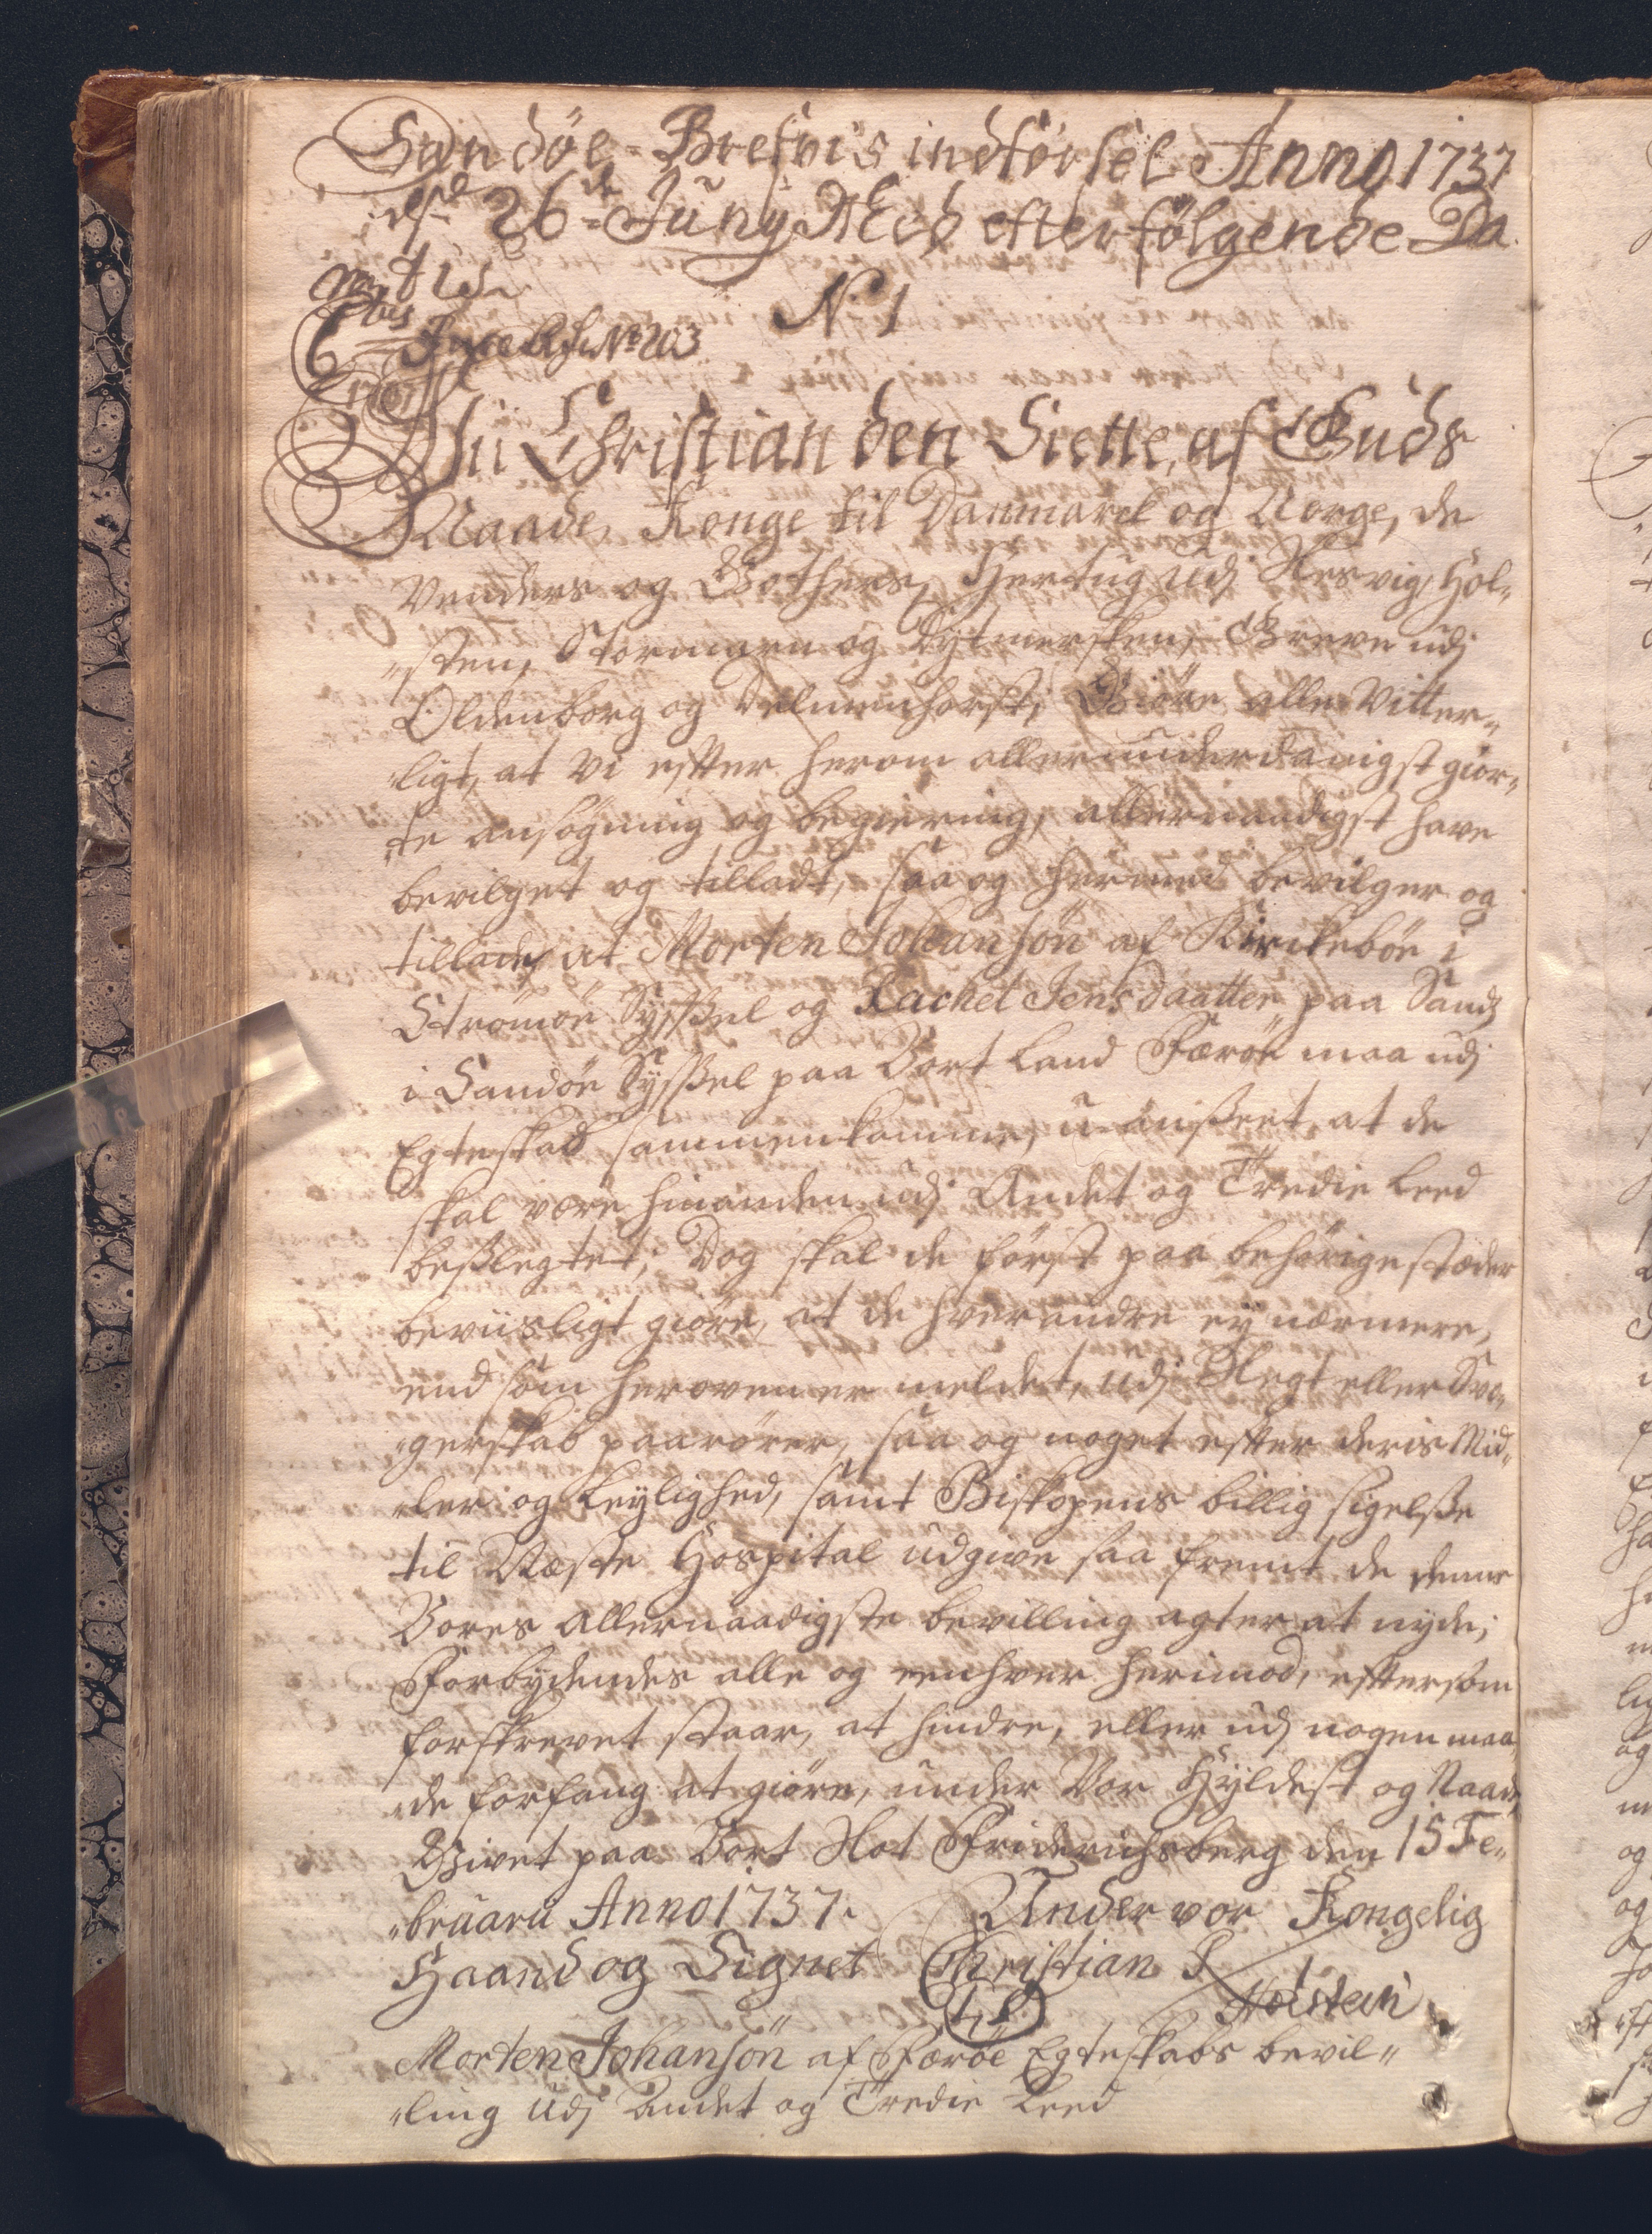 Sandöe-Brefvis indförsel Anno 1737
dsd 26de Juny Med efterfølgende Da,,
tis
N: 1
6
No 203
1737
Vii Christian den Siette, af Guds
Naade, Konge til Danmarck og Norge, de
Venders og Gothers, Hertug udj Slesvig, Hol,,
,,sten, Stormarn og Dytmersken, Greve udj
Oldenborg og Delmenhorst; Giöre alle Vitter,,
,,ligt, at Vi effter herom allerunderdanigst gior,,
,,te ansögning og begiering, allernaadigst have
bevilget og tilladt, saa og hermed bevilger og
tillader, at Morten Johansön af Kirckeböe i
Strömöe Sysßel og Rachel Jens daatter paa Sand
i Sandöe Sysßel paa Vort Land Færöe maa udj
Egteskab sammenkomme, u-ansßeet, at de
skal være hinanden udj Andet og Tredie Leed
besßlegtet; Dog skal de först paa behörige stæder
beviisligt giöre, at de hverandre ey nærmere,
end som heroven er meldet, udj Slegt eller Sva,,
,,gerskab paarörer, saa og noget effter deris Mid,,
,,ler og Leylighed, samt Biskopens billig sigelsße
til Næste Hospital udgive saa fremt de denne
Vores Allernaadigste bevilling agter at nyde;
Forbydendes alle og eenhver herimod, efftersom
forskrevet staar, at hindre, eller udj nogen maa,,
,,de forfang at giöre, under Vor Hyldest og Naade,
Givet paa Vort Slot Friderichsberg den 15 Fe,,
,,bruarii Anno 1737. Under vor Kongelig
Haand og Signet Christian R
L S Holstein
Morten Johansön af Færöe Egteskabs bevil,,
,,ling udj Andet og Tredie Leed